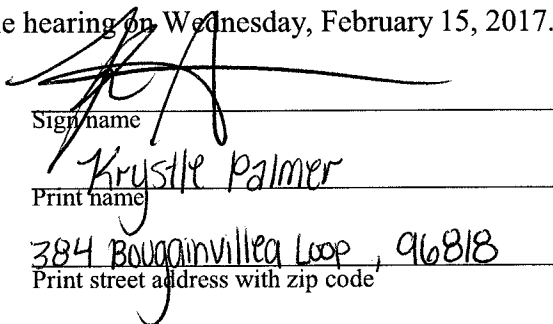 e hearing on Wednesday, February 15, 2017.
Sign name
Krystle Palmer
Print name
384 Bougainvillea Loop, 96818
Print street address with zip code